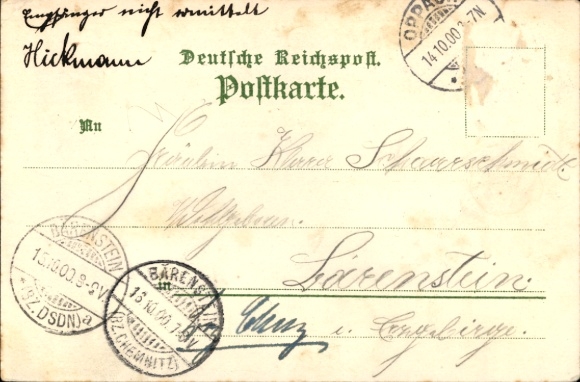 Empfänger nicht ermittelt
Hickmann
Deutsche Reichspost.
Postkarte.
14.10.00.8-7N
An
Fräulein Klara Scharschmidt
in Bärenstein.
i. Erzgebirge.
BÄRENSTEIN
15.10.00.8-9V
*(BZ.DSDN)a
BÄRENSTEIN
16.10.00.7-8V
(BZ.CHEMNITZ)